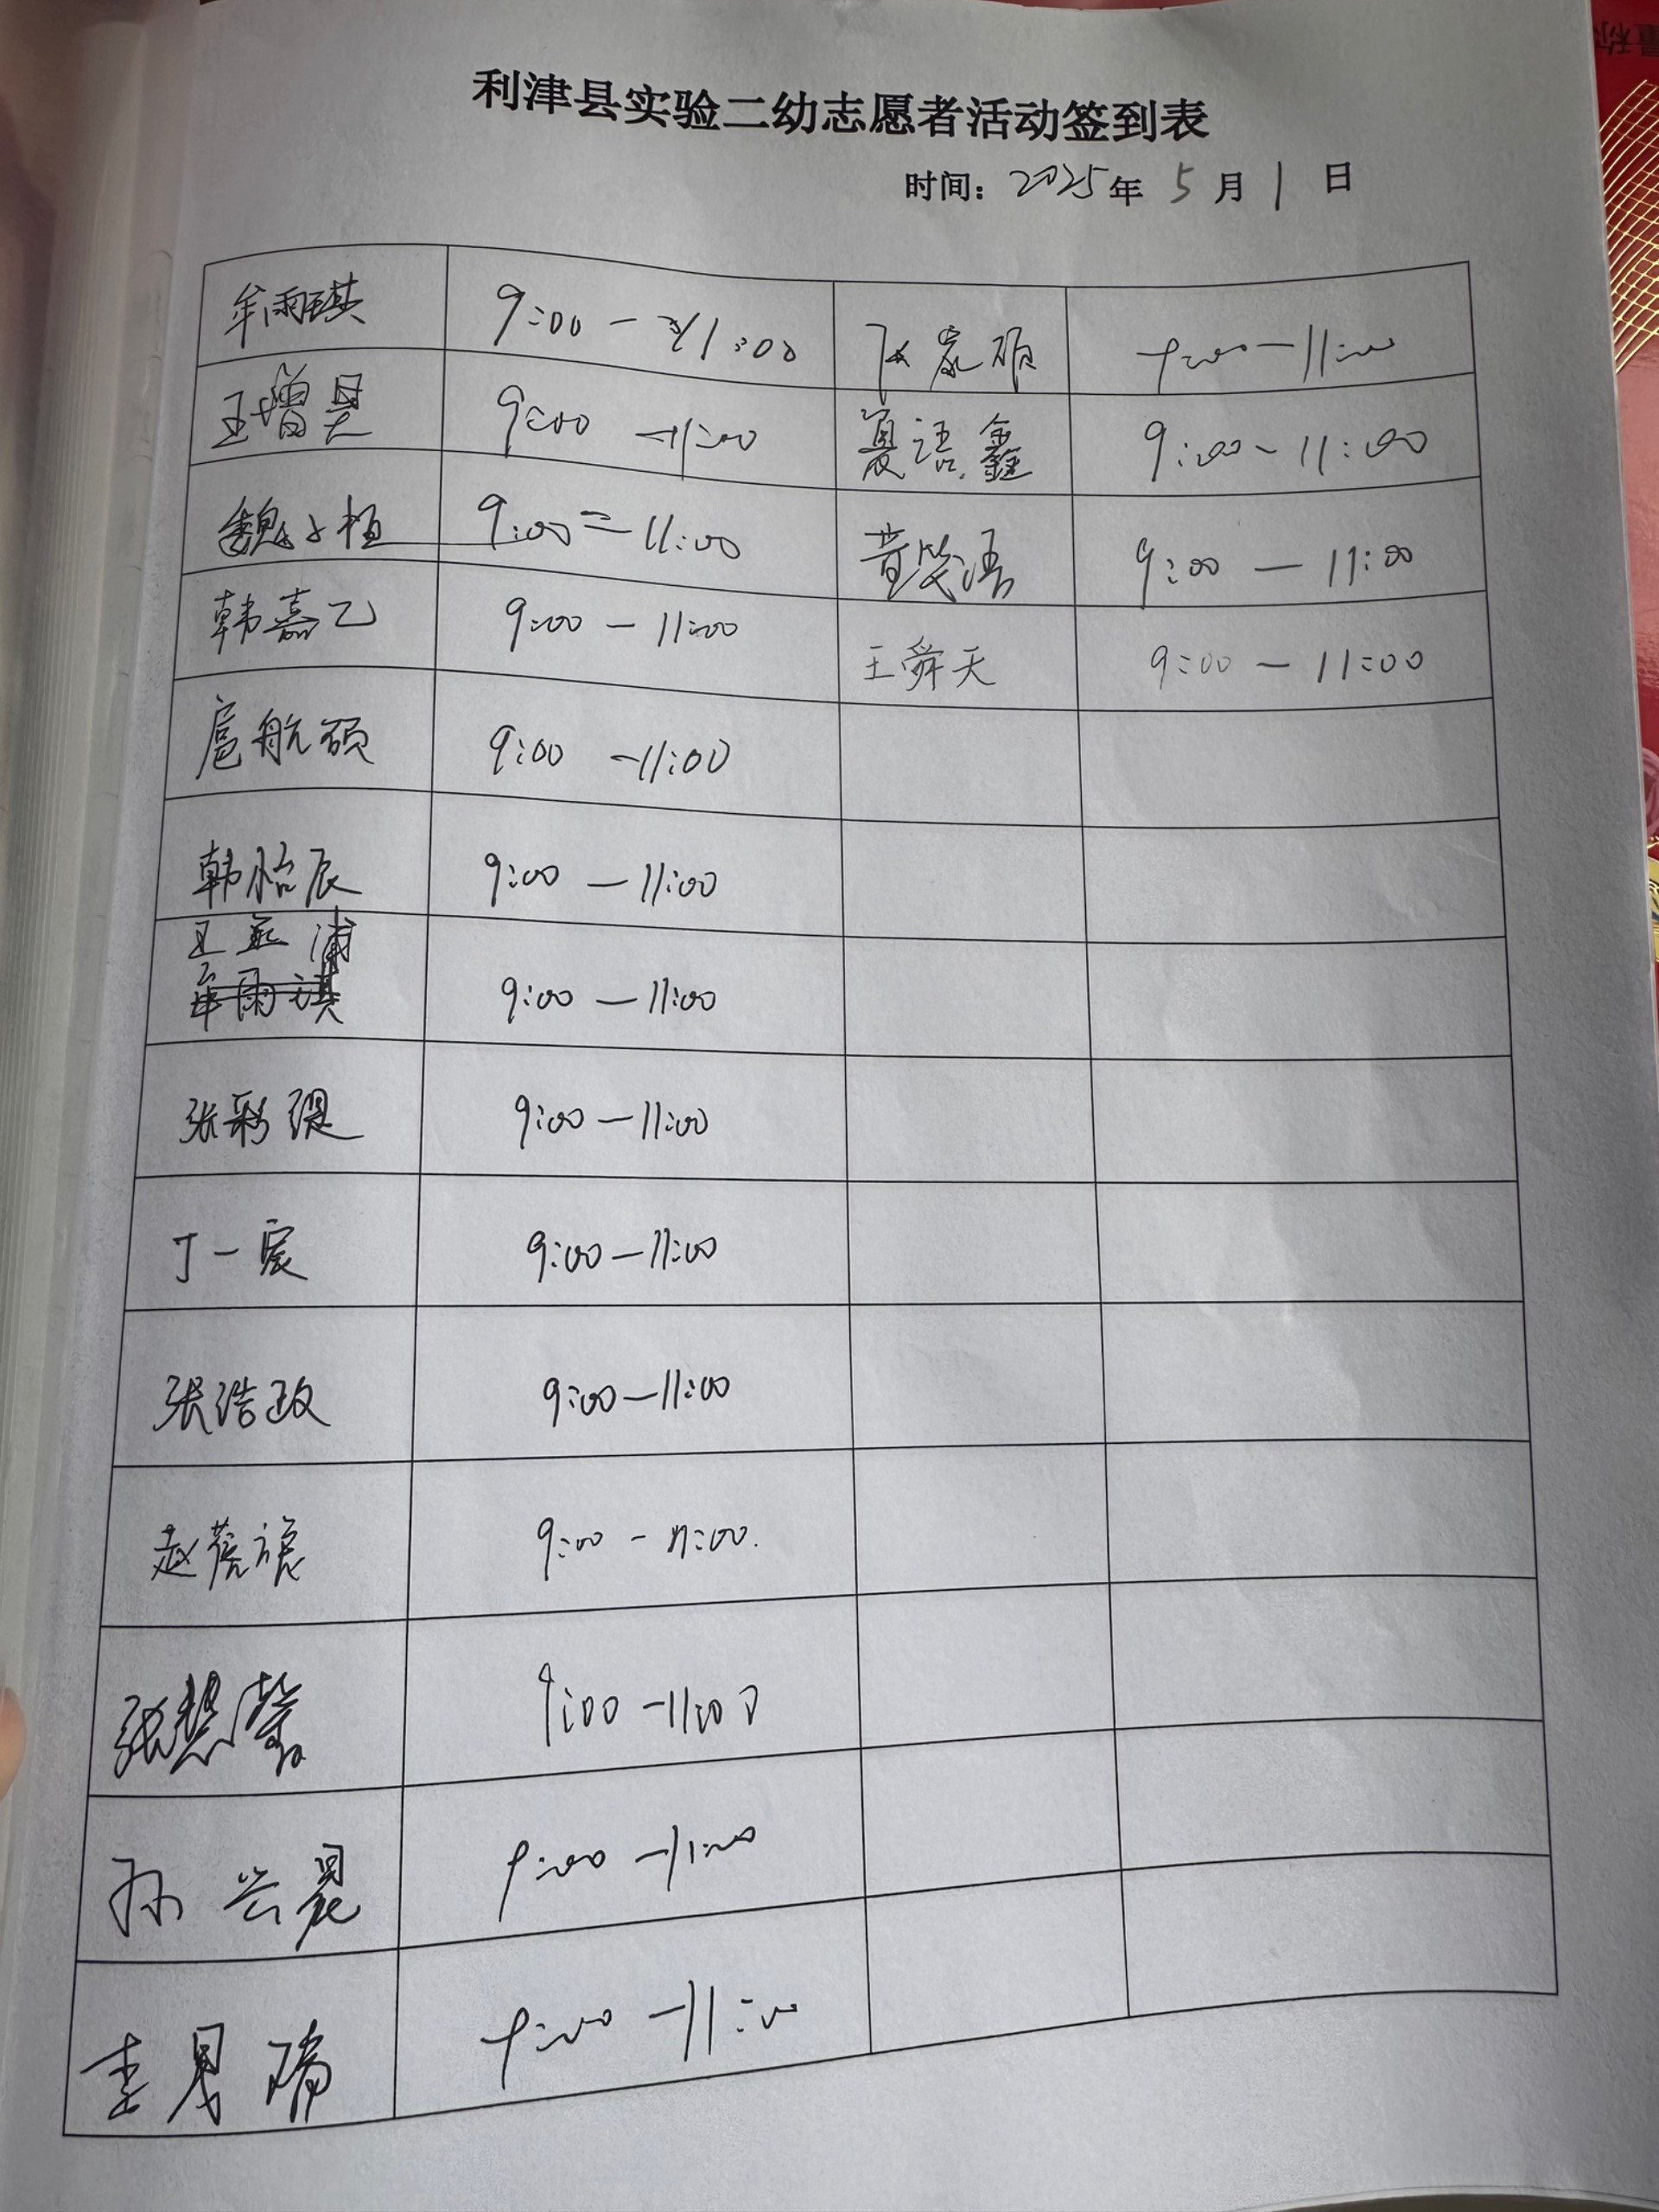 利津县实验二幼志愿者活动签到表
时间：2025年 5月 1日
牟雨琪 9:00 - 11:00 张家硕 9:00 - 11:00
王增昊 9:00 - 11:00 夏语鑫 9:00 - 11:00
魏 9:00 - 11:00 黄笑语 9:00 - 11:00
韩嘉乙 9:00 - 11:00 王舜天 9:00 - 11:00
扈航硕 9:00 - 11:00
韩怡辰 9:00 - 11:00
王 浦
牟雨琪 9:00 - 11:00
张彩 9:00 - 11:00
丁一宸 9:00 - 11:00
张浩政 9:00 - 11:00
赵 9:00 - 11:00.
张慧馨 9:00 - 11:00
孙兴晨 9:00 - 11:00
9:00 - 11:00